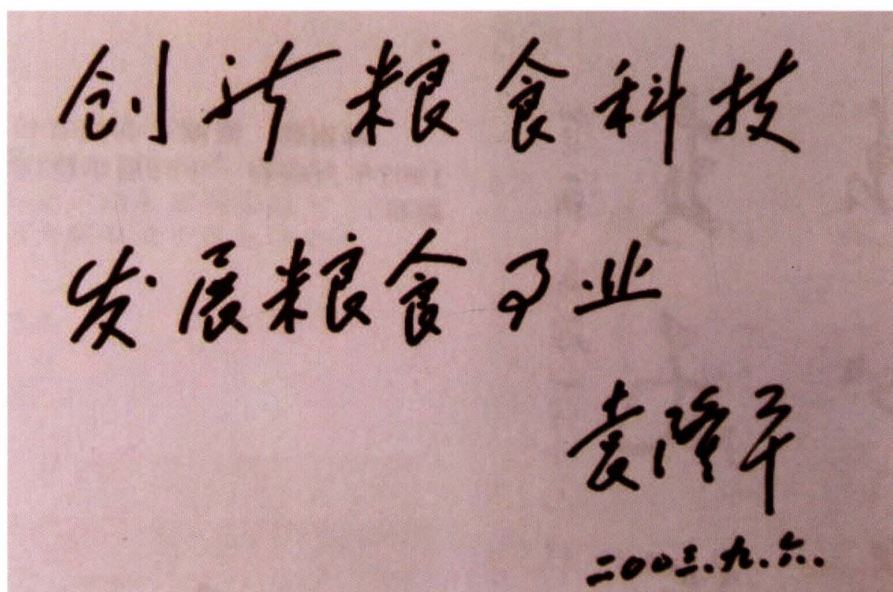 创新粮食科技
发展粮食事业
袁隆平
二〇〇三.九.六.